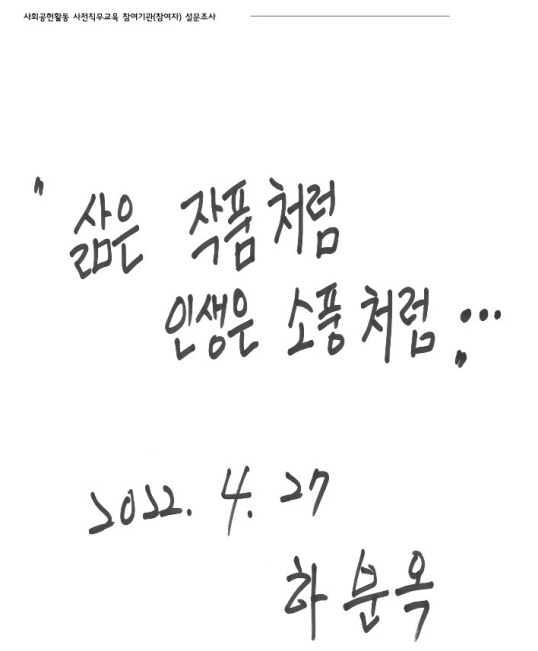 사회공헌활동 사전직무교육 참여기관(참여자) 설문조사
"삶은 작품처럼
인생은 소풍처럼..."
2022. 4. 27
하분옥